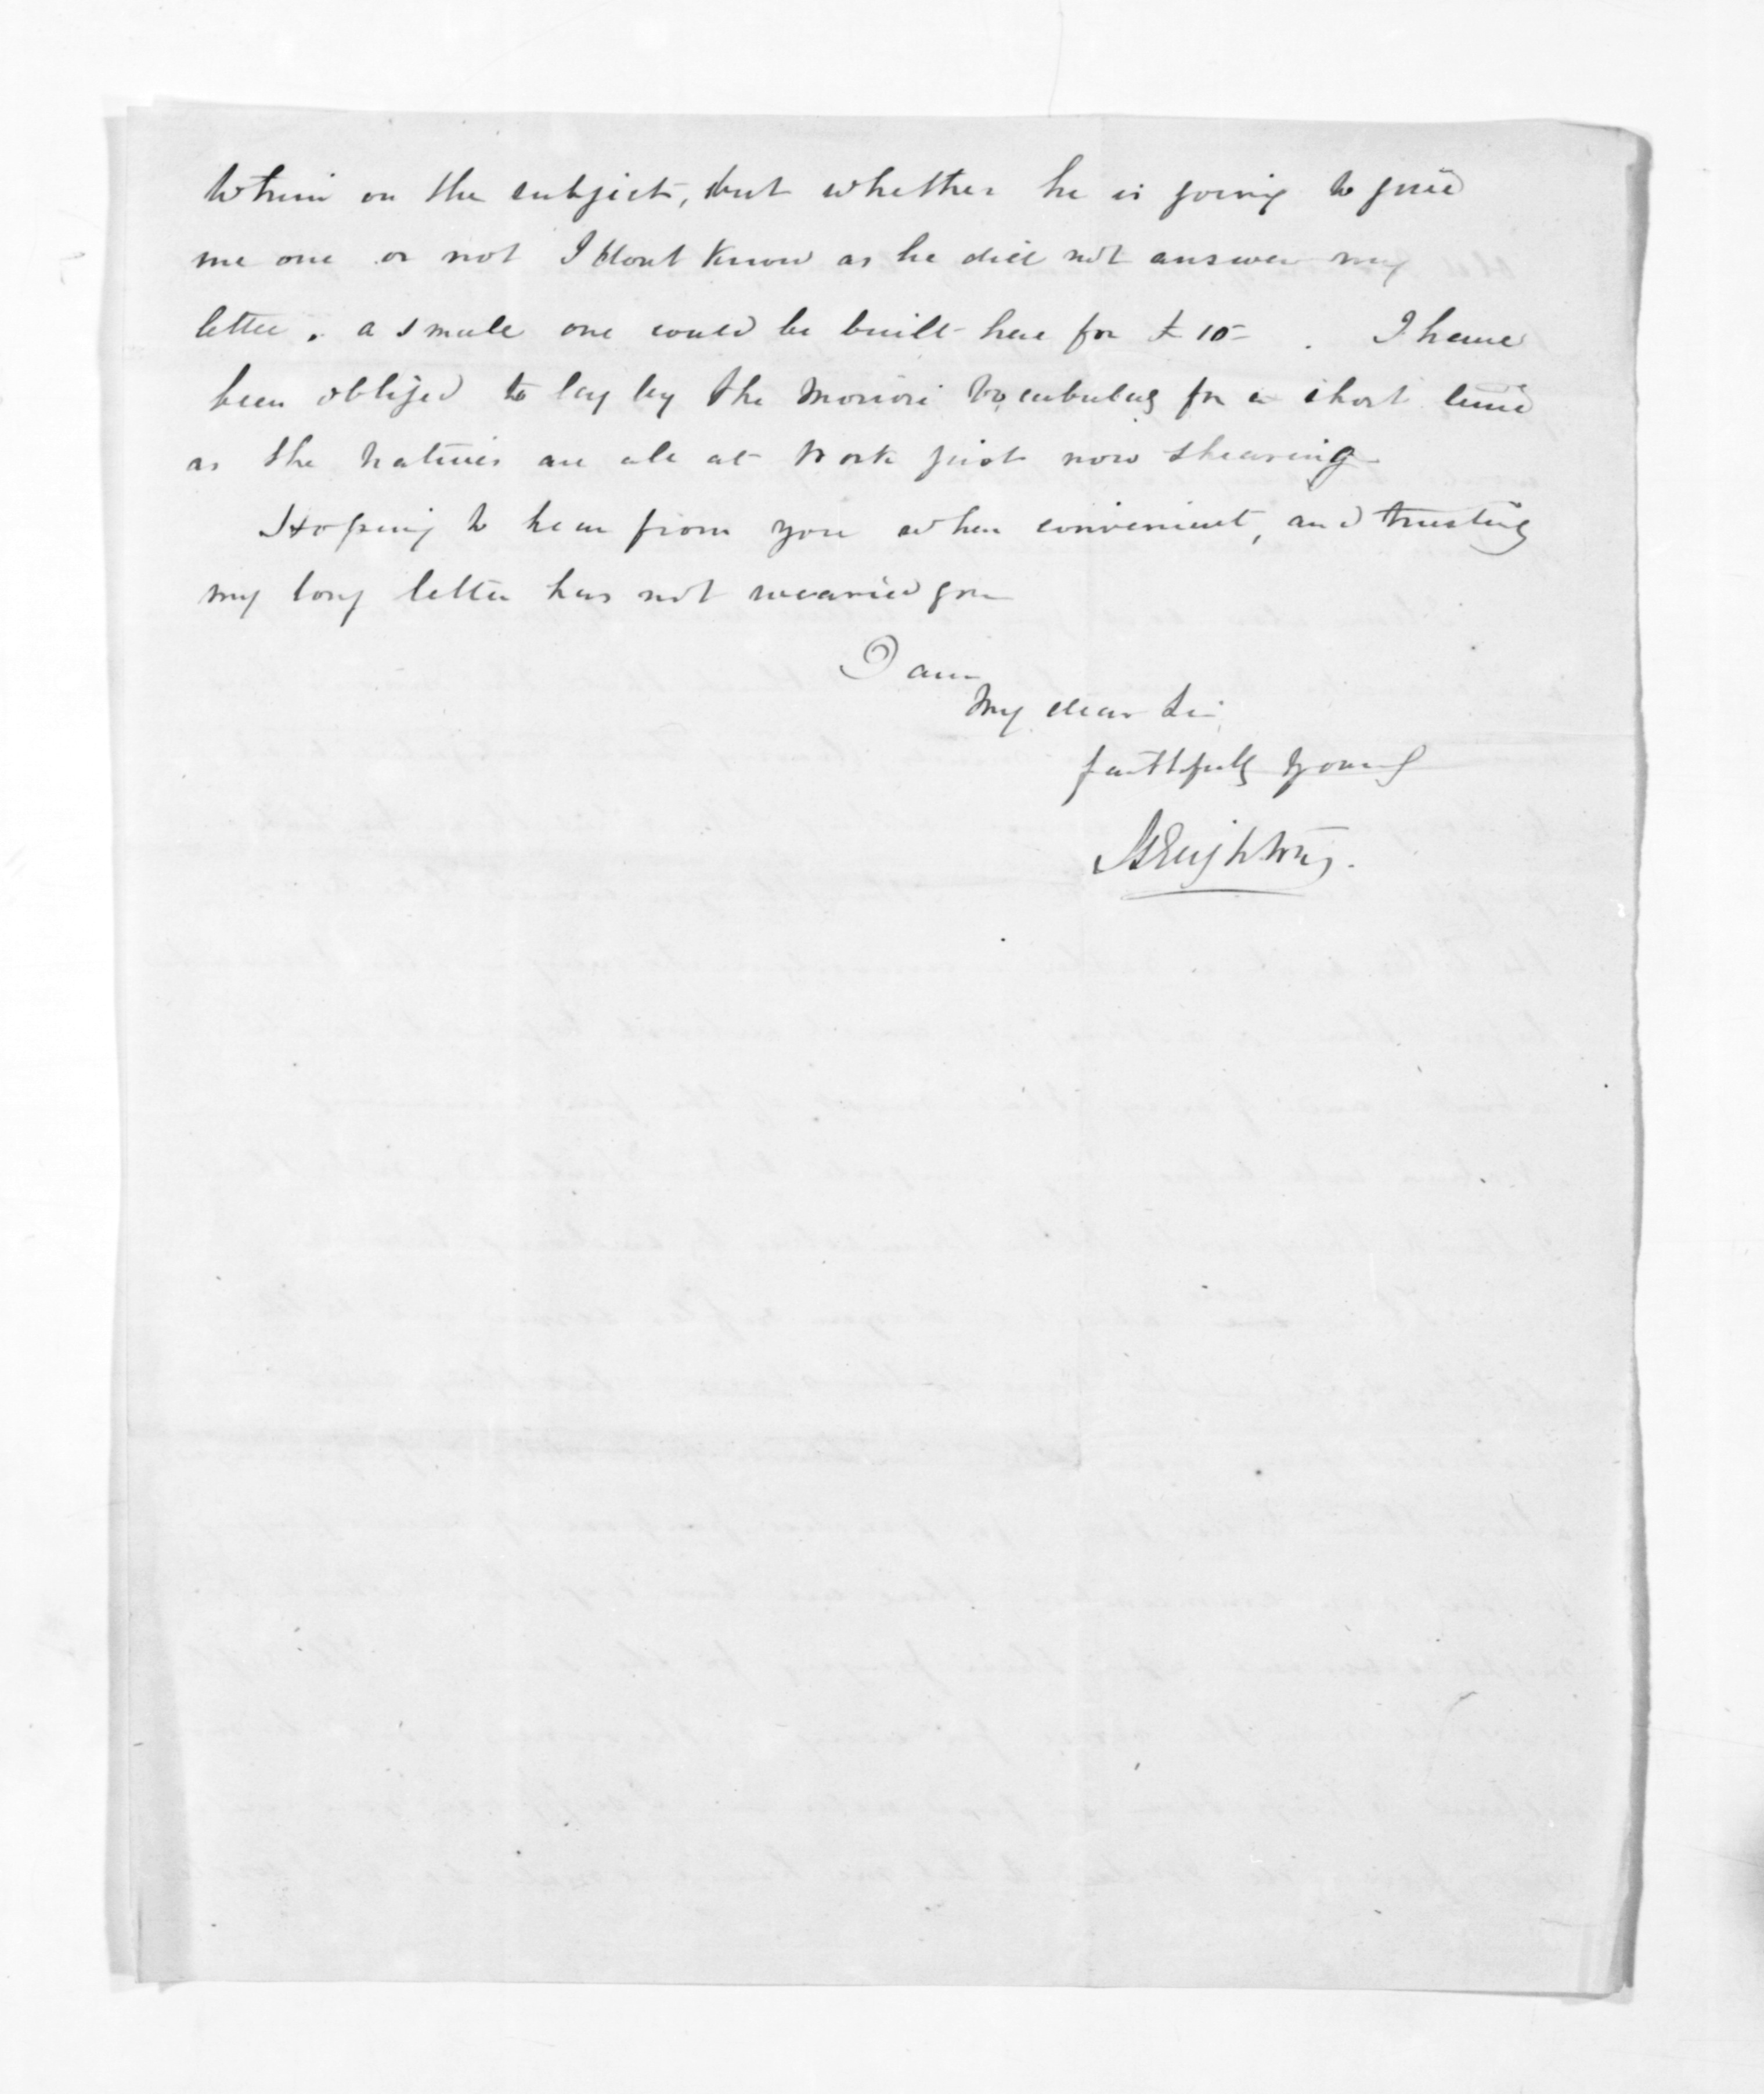 to him on the subject, but whether he is going to give
me one or not I dont know as he did not answer my
letter. a small one could be built here for £10- . I have
been obliged to lay by the Moriori Vocabulary for a short time
as the natives are all at work just now shearing
Hoping to hear from you when convenient, and trusting
my long letter has not wearied you
I am
My dear Sir
faithfully yours